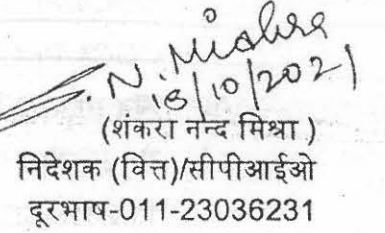 N. Mishra
18/10/2021
(शंकरा नन्द मिश्रा )
निदेशक (वित्त)/सीपीआईओ
दूरभाष-011-23036231